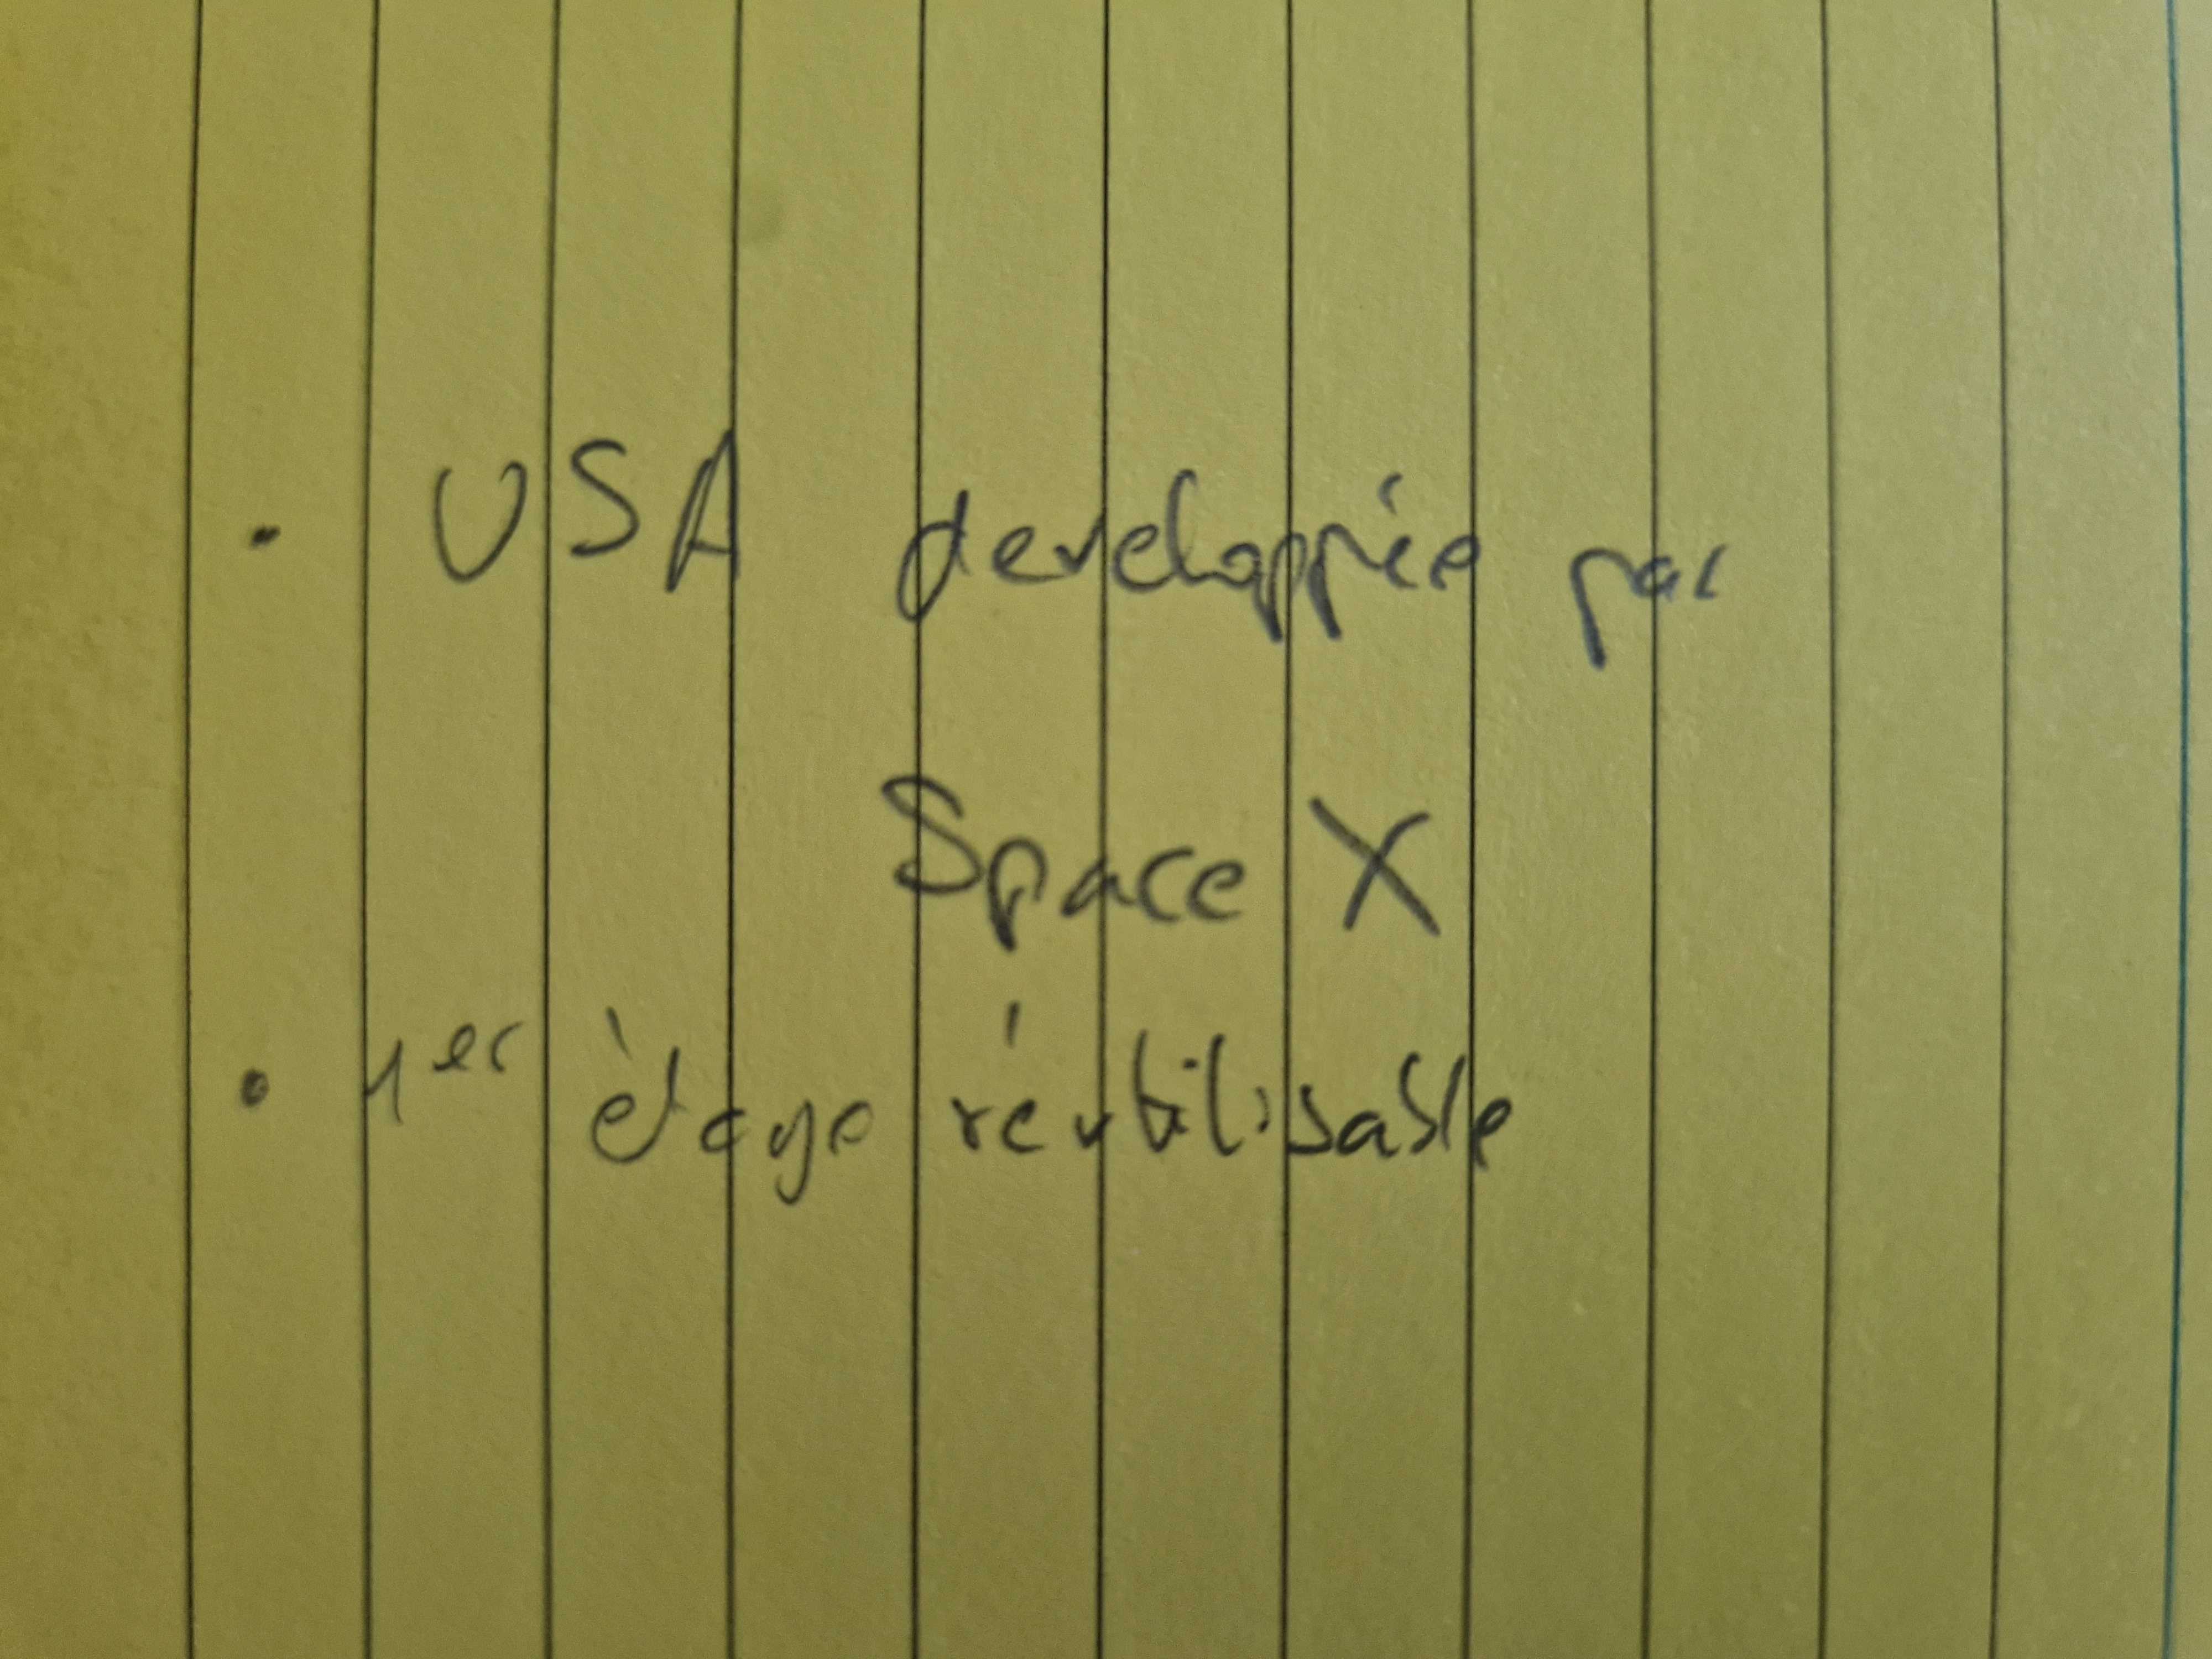 · USA developpée par
Space X
· 1er ètage réutilisable